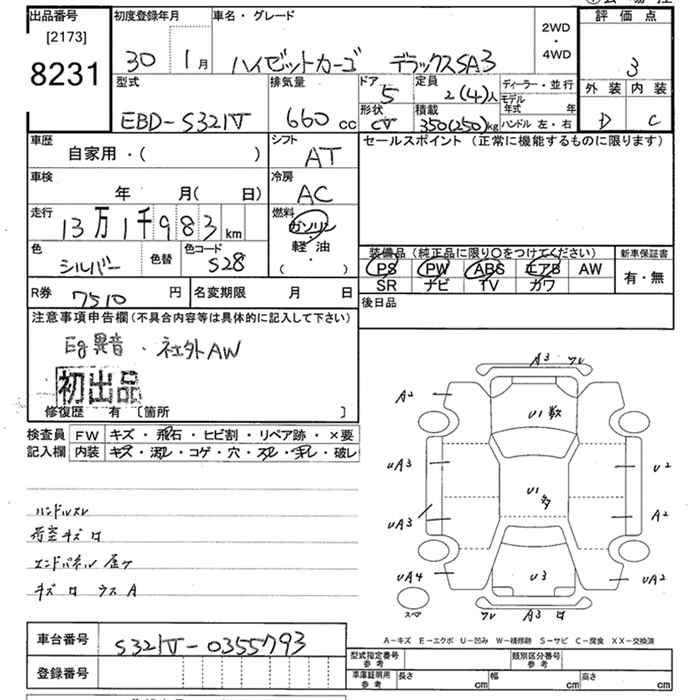 出品番号
[2173]
8231
初度登録年月
30 1月
車名・グレード
ハイゼットカーゴ デラックスSA3
2WD
・
4WD
評価点
3
外装 内装
D C
型式
EBD-S321V
排気量
660 cc
ドア
5
形状
CV
定員
2(4)人
積載
350(250)kg
ディーラー・並行
モデル年式 年
ハンドル 左・右
車歴
自家用・( )
シフト
AT
セールスポイント(正常に機能するものに限ります)
車検
年 月( 日)
冷房
AC
走行
13万1千983km
燃料
ガソリン
軽・油
・( )
色
シルバー
色替
色コード
S28
装備品(純正品に限り○をつけてください)
PS PW ABS エアB AW
SR ナビ TV カワ
新車保証書
有・無
R券 7510 円
名変期限 月 日
後日品
注意事項申告欄(不具合内容等は具体的に記入して下さい)
Eg異音 ・社外AW
初出品
修復歴 有 [箇所 ]
検査員 FW キズ・飛石・ヒビ割・リペア跡・×要
記入欄 内装 キズ・汚レ・コゲ・穴・スレ・キレ・破レ
ハンドルスレ
荷室キズ ロ
エンドパネル 歪ケ
キズ ロ ウス A
A3 ワレ
A2
U1 数
UA3
U2
U1 多
UA3
A2
UA4
U3
UA2
スペア
ワレ A3 ロ
A-キズ E-エクボ U-凹み W-補修跡 S-サビ C-腐食 XX-交換済
車台番号 S321V-0355793
登録番号
型式指定番号 参考
類別区分番号 参考
車庫証明用 参考
長さ cm 幅 cm 高さ cm